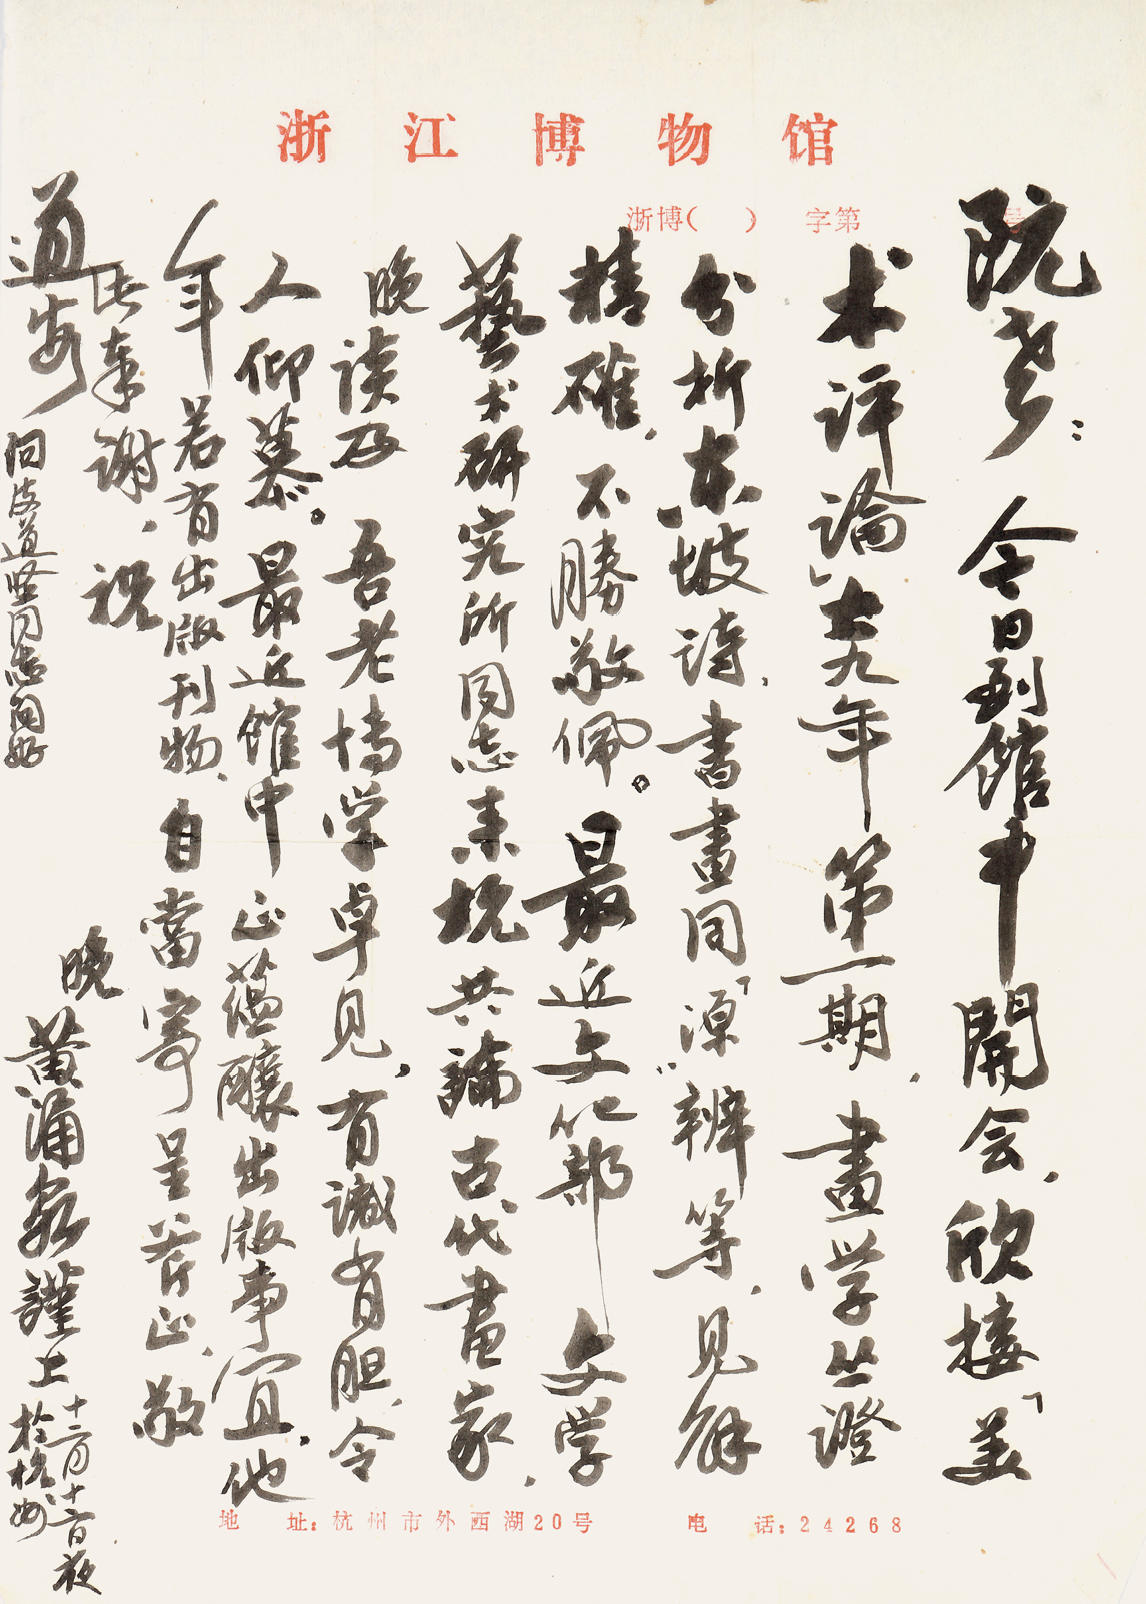 浙江博物馆
浙博( ) 字第 号
阮老：今日到馆中開会，欣接「美
术评論」七九年第一期，畫学丛證
分析东坡诗，書畫同「源」辨等，見解
精確，不勝敬佩。最近文化部文学
藝术研究所同志来杭共論古代畫家，
晚谈及 吾老博学卓見，有識有胆，令
人仰慕。最近館中正蕴釀出版事宜，他
年若有出版刊物，自當寄呈斧正，敬
此奉謝，祝
道安 问皮道坚同志问好
晚黄涌泉謹上 十二月十二日夜
於杭州
地 址：杭州市外西湖20号 电 话：24268